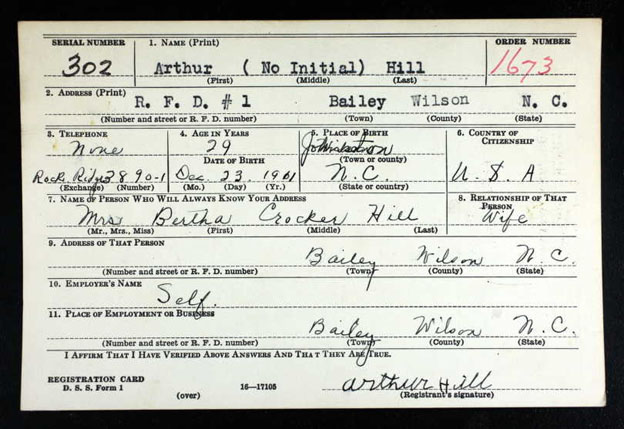 SERIAL NUMBER 1. NAME (Print) ORDER NUMBER
302 Arthur ( No Initial) Hill 1673
(First) (Middle) (Last)
2. ADDRESS (Print)
R. F. D. # 1 Bailey Wilson N. C.
(Number and street or R. F. D. number) (Town) (County) (State)
3. TELEPHONE 4. AGE IN YEARS 5. PLACE OF BIRTH 6. COUNTRY OF CITIZENSHIP
None 29 Johnston
DATE OF BIRTH (Town or county)
Rock Ridge 3890-1 Dec. 23. 1911 N.C. U. S. A
(Exchange) (Number) (Mo.) (Day) (Yr.) (State or country)
7. NAME OF PERSON WHO WILL ALWAYS KNOW YOUR ADDRESS 8. RELATIONSHIP OF THAT PERSON
Mrs Bertha Crocker Hill Wife
(Mr., Mrs., Miss) (First) (Middle) (Last)
9. ADDRESS OF THAT PERSON
Bailey Wilson N. C.
(Number and street or R. F. D. number) (Town) (County) (State)
10. EMPLOYER'S NAME
Self.
11. PLACE OF EMPLOYMENT OR BUSINESS
Bailey Wilson N. C.
(Number and street or R. F. D. number) (Town) (County) (State)
I AFFIRM THAT I HAVE VERIFIED ABOVE ANSWERS AND THAT THEY ARE TRUE.
REGISTRATION CARD
D. S. S. Form 1 (over) 16—17105 Arthur Hill
(Registrant's signature)